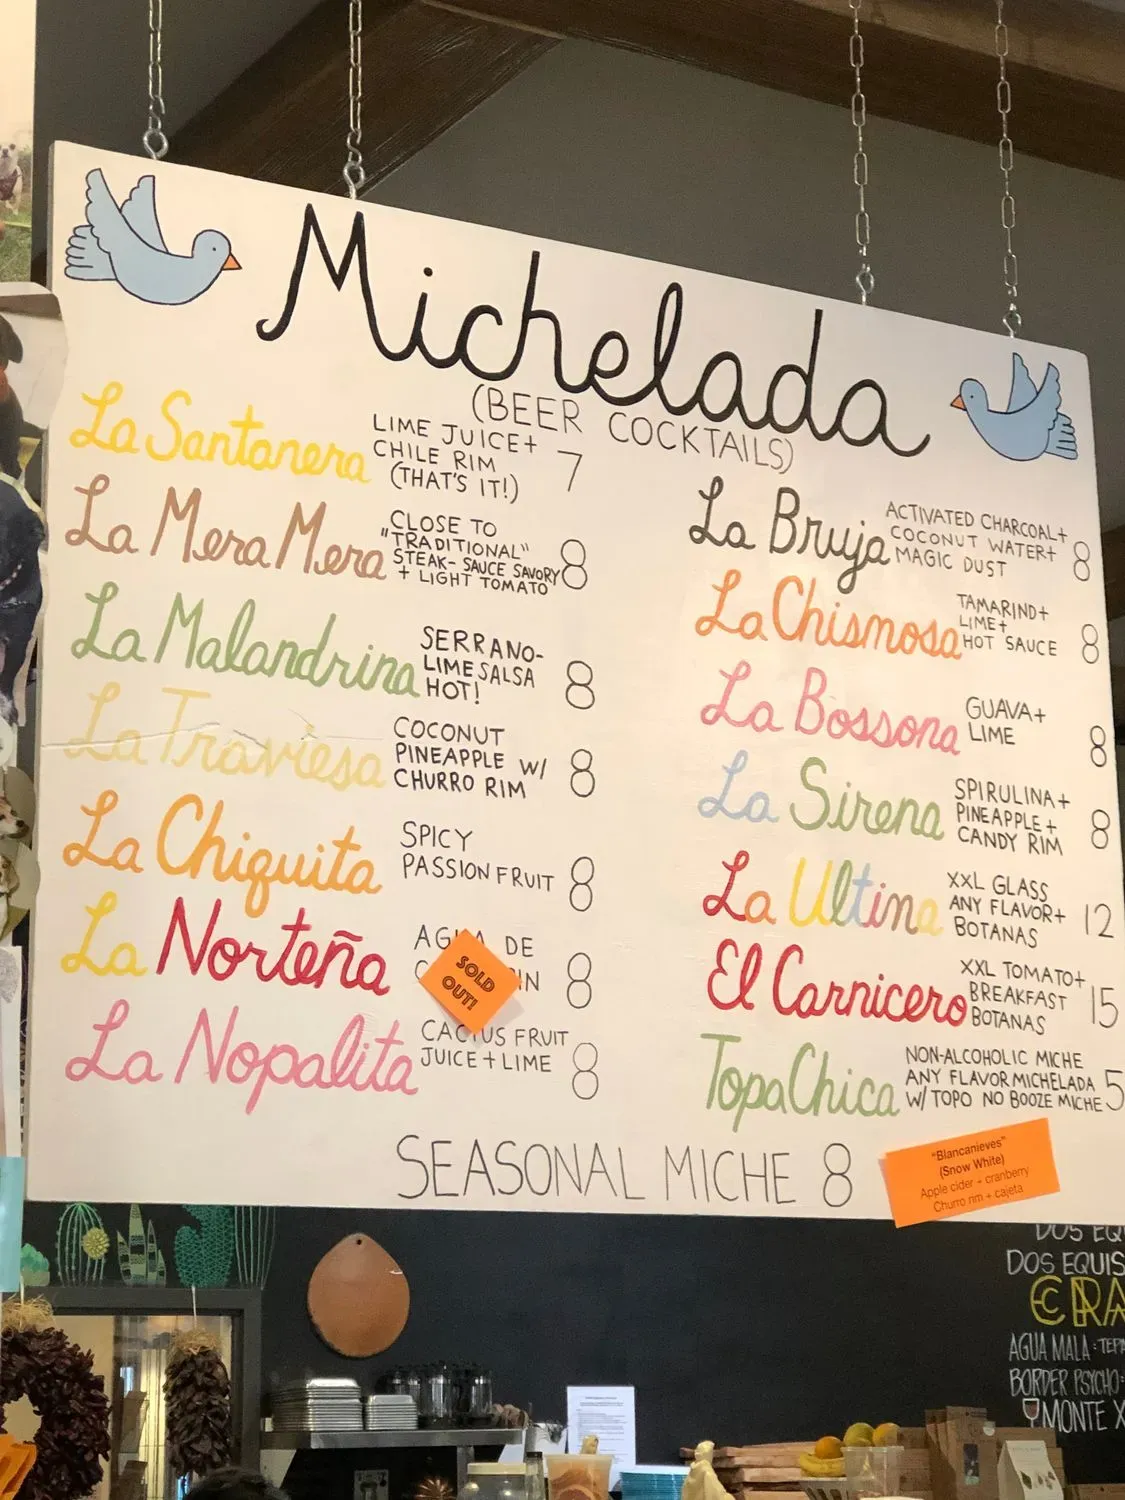 Michelada
(BEER COCKTAILS)
La Santanera
LIME JUICE+
CHILE RIM
(THAT'S IT!)
7
La Mera Mera
CLOSE TO
"TRADITIONAL"
STEAK-SAUCE SAVORY
+ LIGHT TOMATO
8
La Malandrina
SERRANO-
LIME SALSA
HOT!
8
La Traviesa
COCONUT
PINEAPPLE W/
CHURRO RIM
8
La Chiquita
SPICY
PASSION FRUIT
8
La Norteña
DE
8
SOLD
OUT!
La Nopalita
CACTUS FRUIT
JUICE + LIME
8
La Bruja
ACTIVATED CHARCOAL+
COCONUT WATER+
MAGIC DUST
8
La Chismosa
TAMARIND+
LIME+
HOT SAUCE
8
La Bossona
GUAVA+
LIME
8
La Sirena
SPIRULINA+
PINEAPPLE+
CANDY RIM
8
La Ultina
XXL GLASS
ANY FLAVOR+
BOTANAS
12
El Carnicero
XXL TOMATO+
BREAKFAST
BOTANAS
15
TopaChica
NON-ALCOHOLIC MICHE
ANY FLAVOR MICHELADA
W/ TOPO NO BOOZE MICHE
5
SEASONAL MICHE 8
"Blancanieves"
(Snow White)
Apple cider + cranberry
Churro rim + cajeta
DOS
DOS EQUIS
AGUA MALA:
BORDER PSYCHO:
MONTE